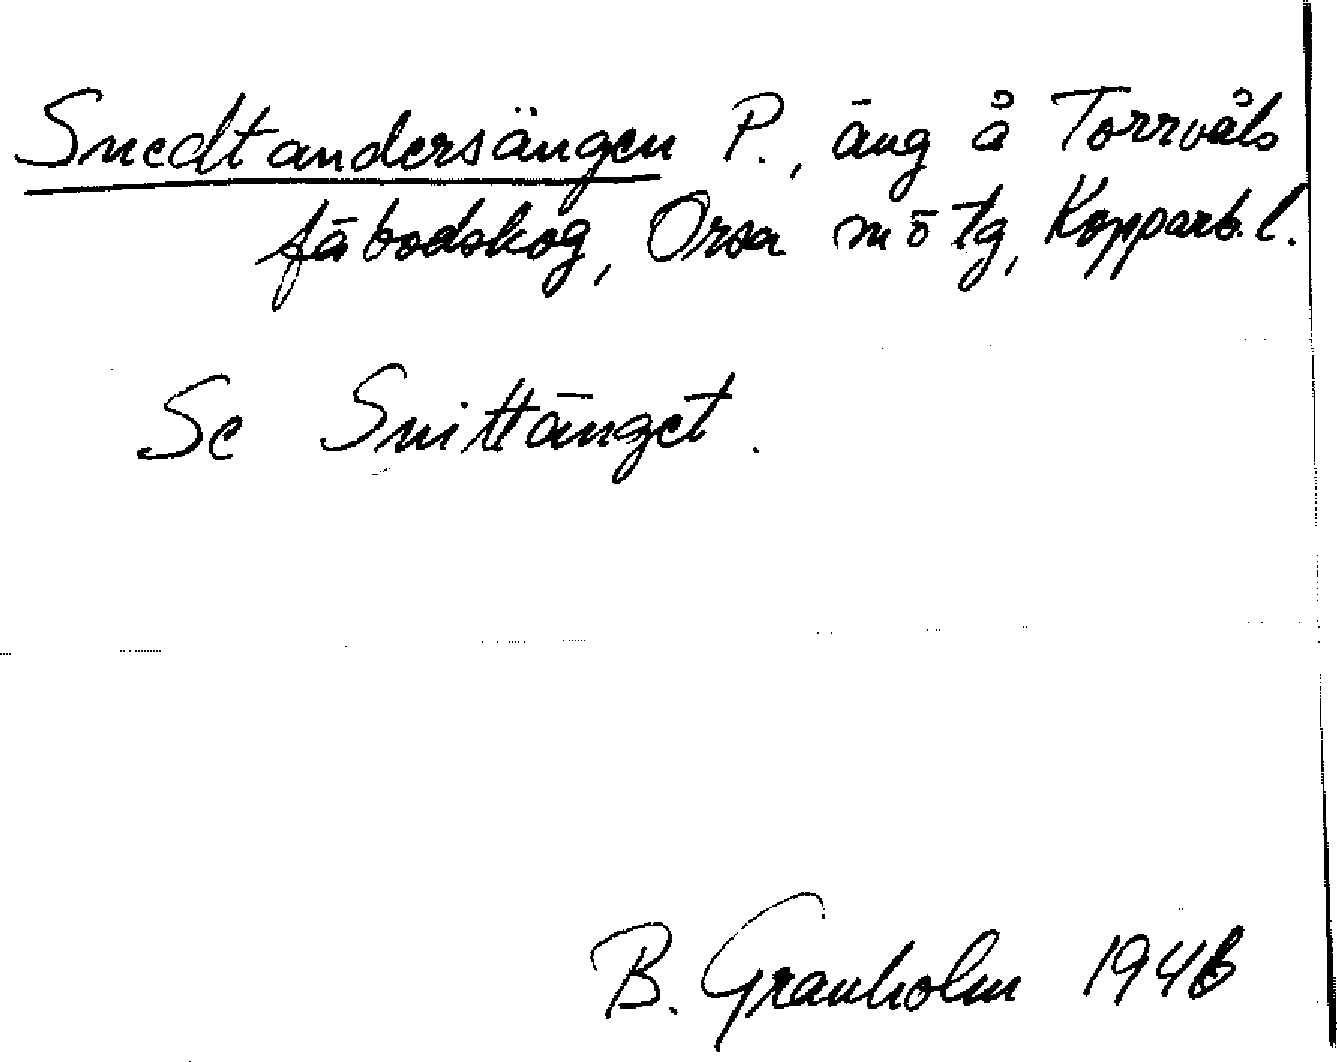 Snedtandersängen P., äng å Torrvåls
fäbodskog, Orsa m ö tg, Kopparb. l.
Se Snittänget.
B. Granholm 1946